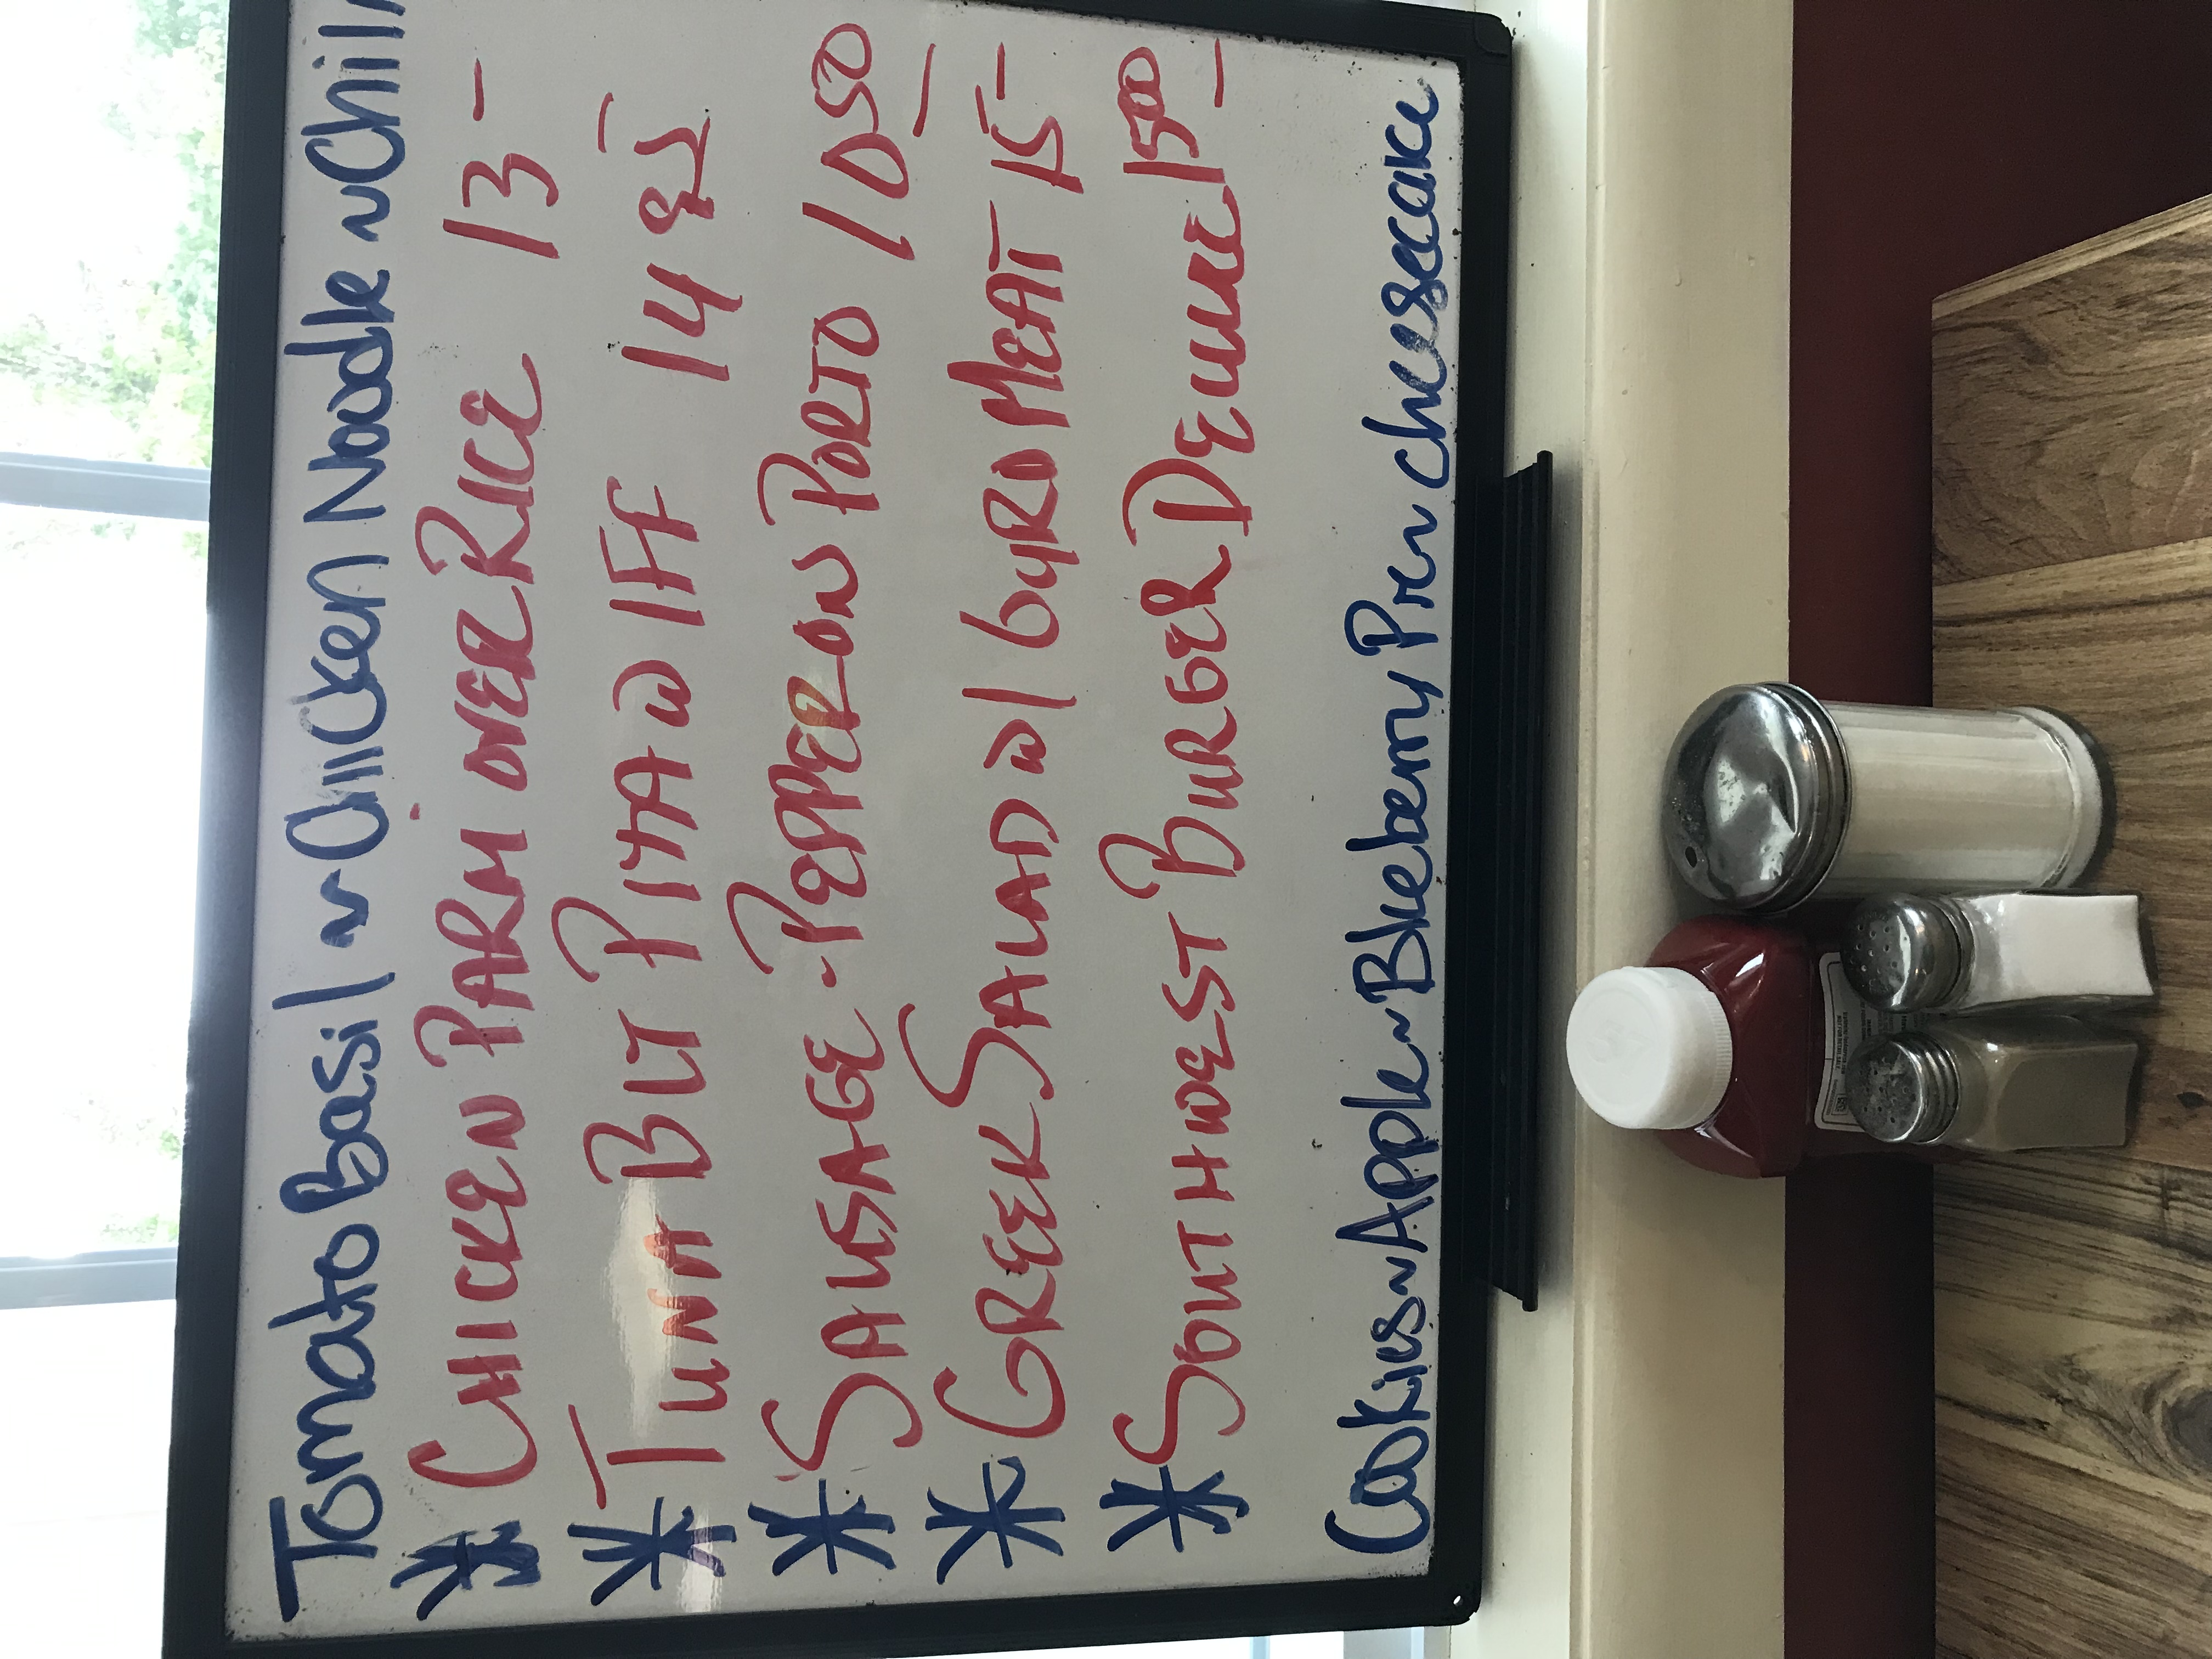 Tomato Basil ~ Chicken Noodle ~ Chili
* CHICKEN PARM OVER RICE 13-
* TUNA BLT PITA W/FF 14 95
* SAUSAGE - PEPPER ON PORTO 10 50
* GREEK SALAD W/ GYRO MEAT 15-
* SOUTHWEST BURGER DELUXE 15 00
Cookies ~ Apple ~ Blueberry Pie ~ Cheesecake